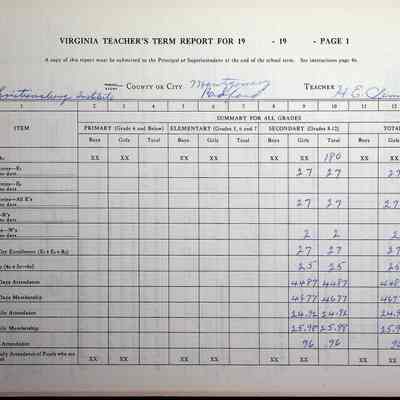 VIRGINIA TEACHER'S TERM REPORT FOR 19 - 19 - PAGE 1
A copy of this report must be submitted to the Principal or Superintendent at the end of the school term. See instructions page 46.
Institute COUNTY OR CITY Montgomery Radford TEACHER H. E.
1 2 3 4 5 6 7 8 9 10 11 12
SUMMARY FOR ALL GRADES
ITEM PRIMARY (Grade 4 and Below) ELEMENTARY (Grades 5, 6 and 7) SECONDARY (Grades 8-12) TOTAL
Boys Girls Total Boys Girls Total Boys Girls Total Boys Girls
XX XX XX XX XX XX 180 XX XX
27 27 27
27 27 27
2 2 2
27 27 27
25 25 25
Days Attendance 4487 4487
Days Membership 4677 4677
Attendance 24.92 24.92
Membership 25.98 25.98
Attendance 96 .96
XX XX XX XX XX XX XX XX